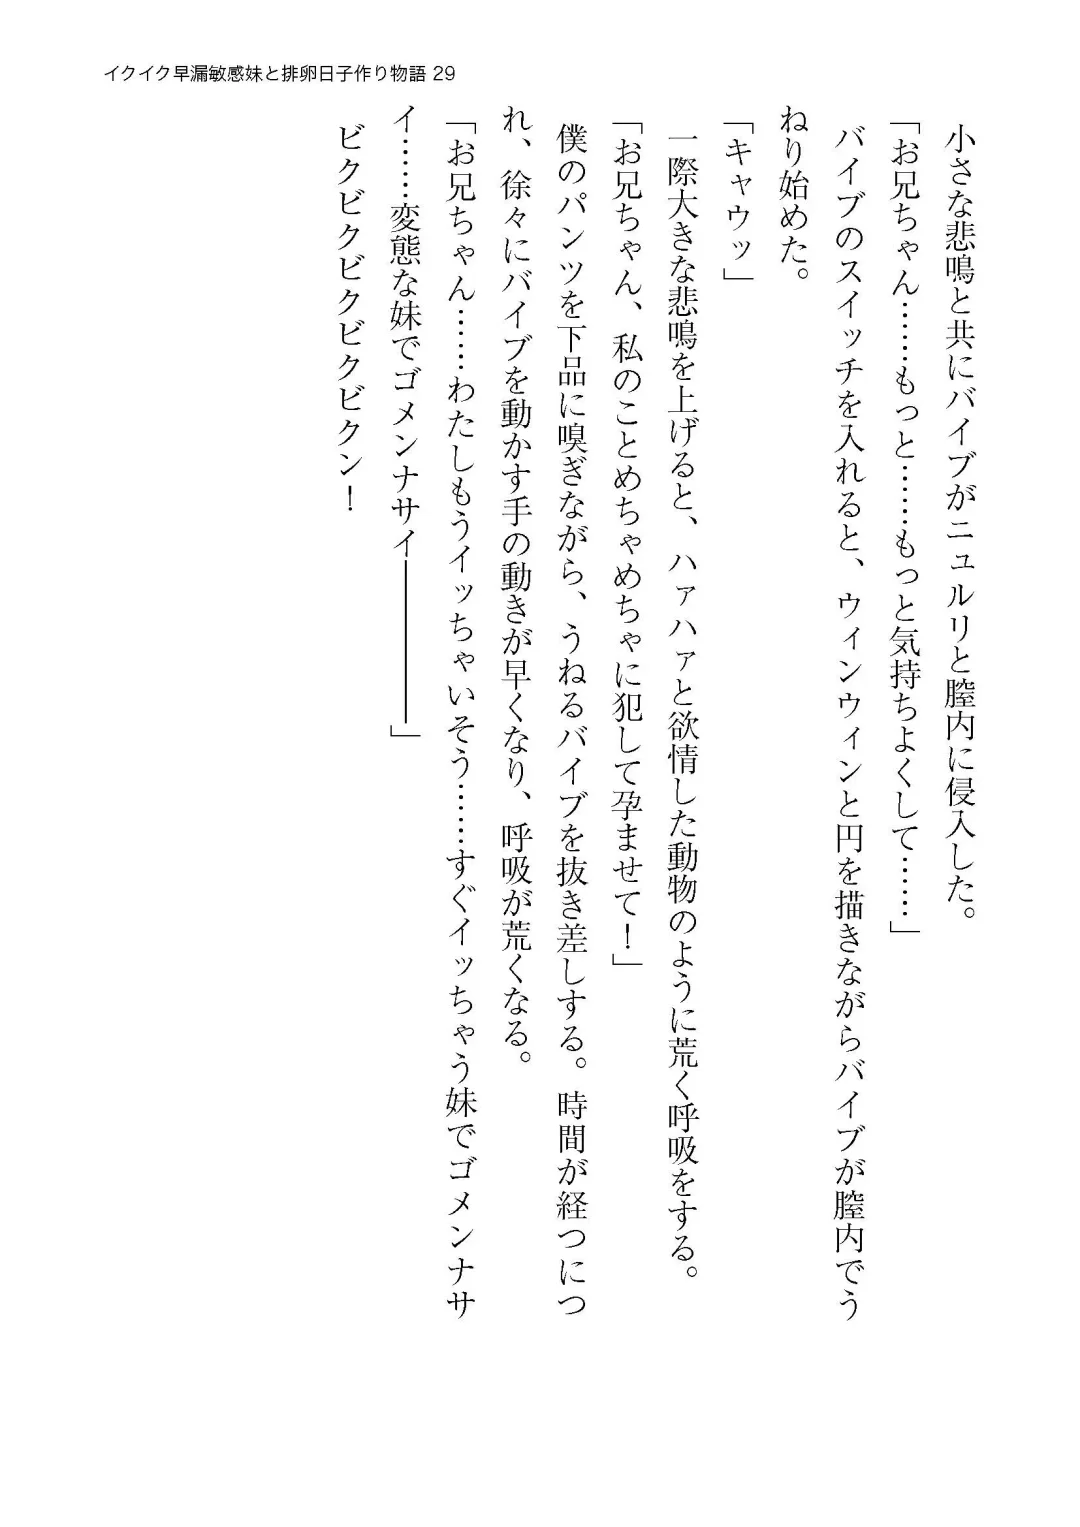 イクイク早漏敏感妹と排卵日子作り物語 29
小さな悲鳴と共にバイブがニュルリと膣内に侵入した。
「お兄ちゃん……もっと……もっと気持ちよくして……」
バイブのスイッチを入れると、ウィンウィンと円を描きながらバイブが膣内でう
ねり始めた。
「キャウッ」
一際大きな悲鳴を上げると、ハァハァと欲情した動物のように荒く呼吸をする。
「お兄ちゃん、私のことめちゃめちゃに犯して孕ませて！」
僕のパンツを下品に嗅ぎながら、うねるバイブを抜き差しする。時間が経つにつ
れ、徐々にバイブを動かす手の動きが早くなり、呼吸が荒くなる。
「お兄ちゃん……わたしもうイッちゃいそう……すぐイッちゃう妹でゴメンナサ
イ……変態な妹でゴメンナサイ―――――」
ビクビクビクビクビクン！